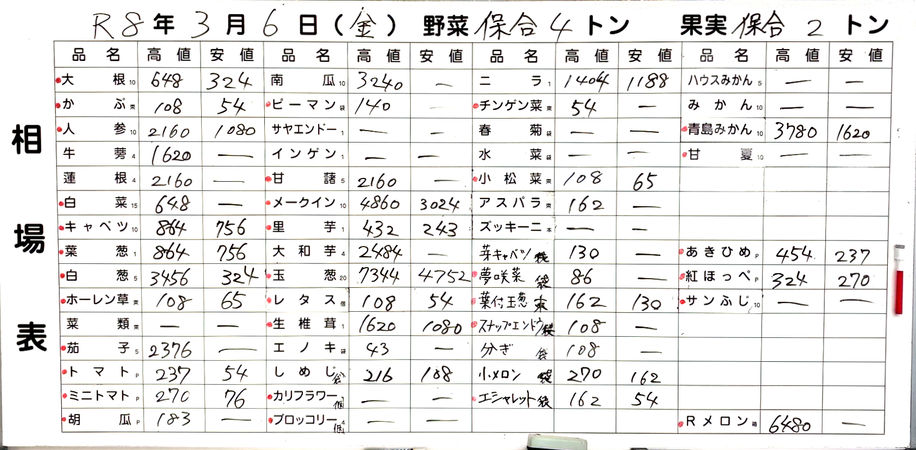 R8年3月6日(金) 野菜 保合 4トン 果実 保合 2トン
相場表
品名 高値 安値 品名 高値 安値 品名 高値 安値 品名 高値 安値
大根10 648 324 南瓜10 3240 — ニラ1 1404 1188 ハウスみかん5 — —
かぶ束 108 54 ピーマン袋 140 — チンゲン菜束 54 — みかん10 — —
人参10 2160 1080 サヤエンドー1 — — 春菊袋 — — 青島みかん10 3780 1620
牛蒡4 1620 — インゲン1 — — 水菜袋 — — 甘夏10 — —
蓮根4 2160 — 甘藷5 2160 — 小松菜束 108 65
白菜15 648 — メークイン10 4860 3024 アスパラ束 162 —
キャベツ10 864 756 里芋1 432 243 ズッキーニ本 — —
葉葱1 864 756 大和芋4 2484 — 芽キャベツ袋 130 — あきひめP 454 237
白葱5 3456 324 玉葱20 7344 4752 夢咲菜袋 86 — 紅ほっぺP 324 270
ホーレン草束 108 65 レタス個 108 54 葉付玉葱束 162 130 サンふじ10 — —
菜類束 — — 生椎茸1 1620 1080 スナップエンドウ袋 108 —
茄子5 2376 — エノキ袋 43 — 分ぎ袋 108 —
トマトP 237 54 しめじ 216 108 小メロン袋 270 162
ミニトマトP 270 76 カリフラワー個 — — エシャレット袋 162 54
胡瓜P 183 — ブロッコリー個 — — Rメロン箱 6480 —